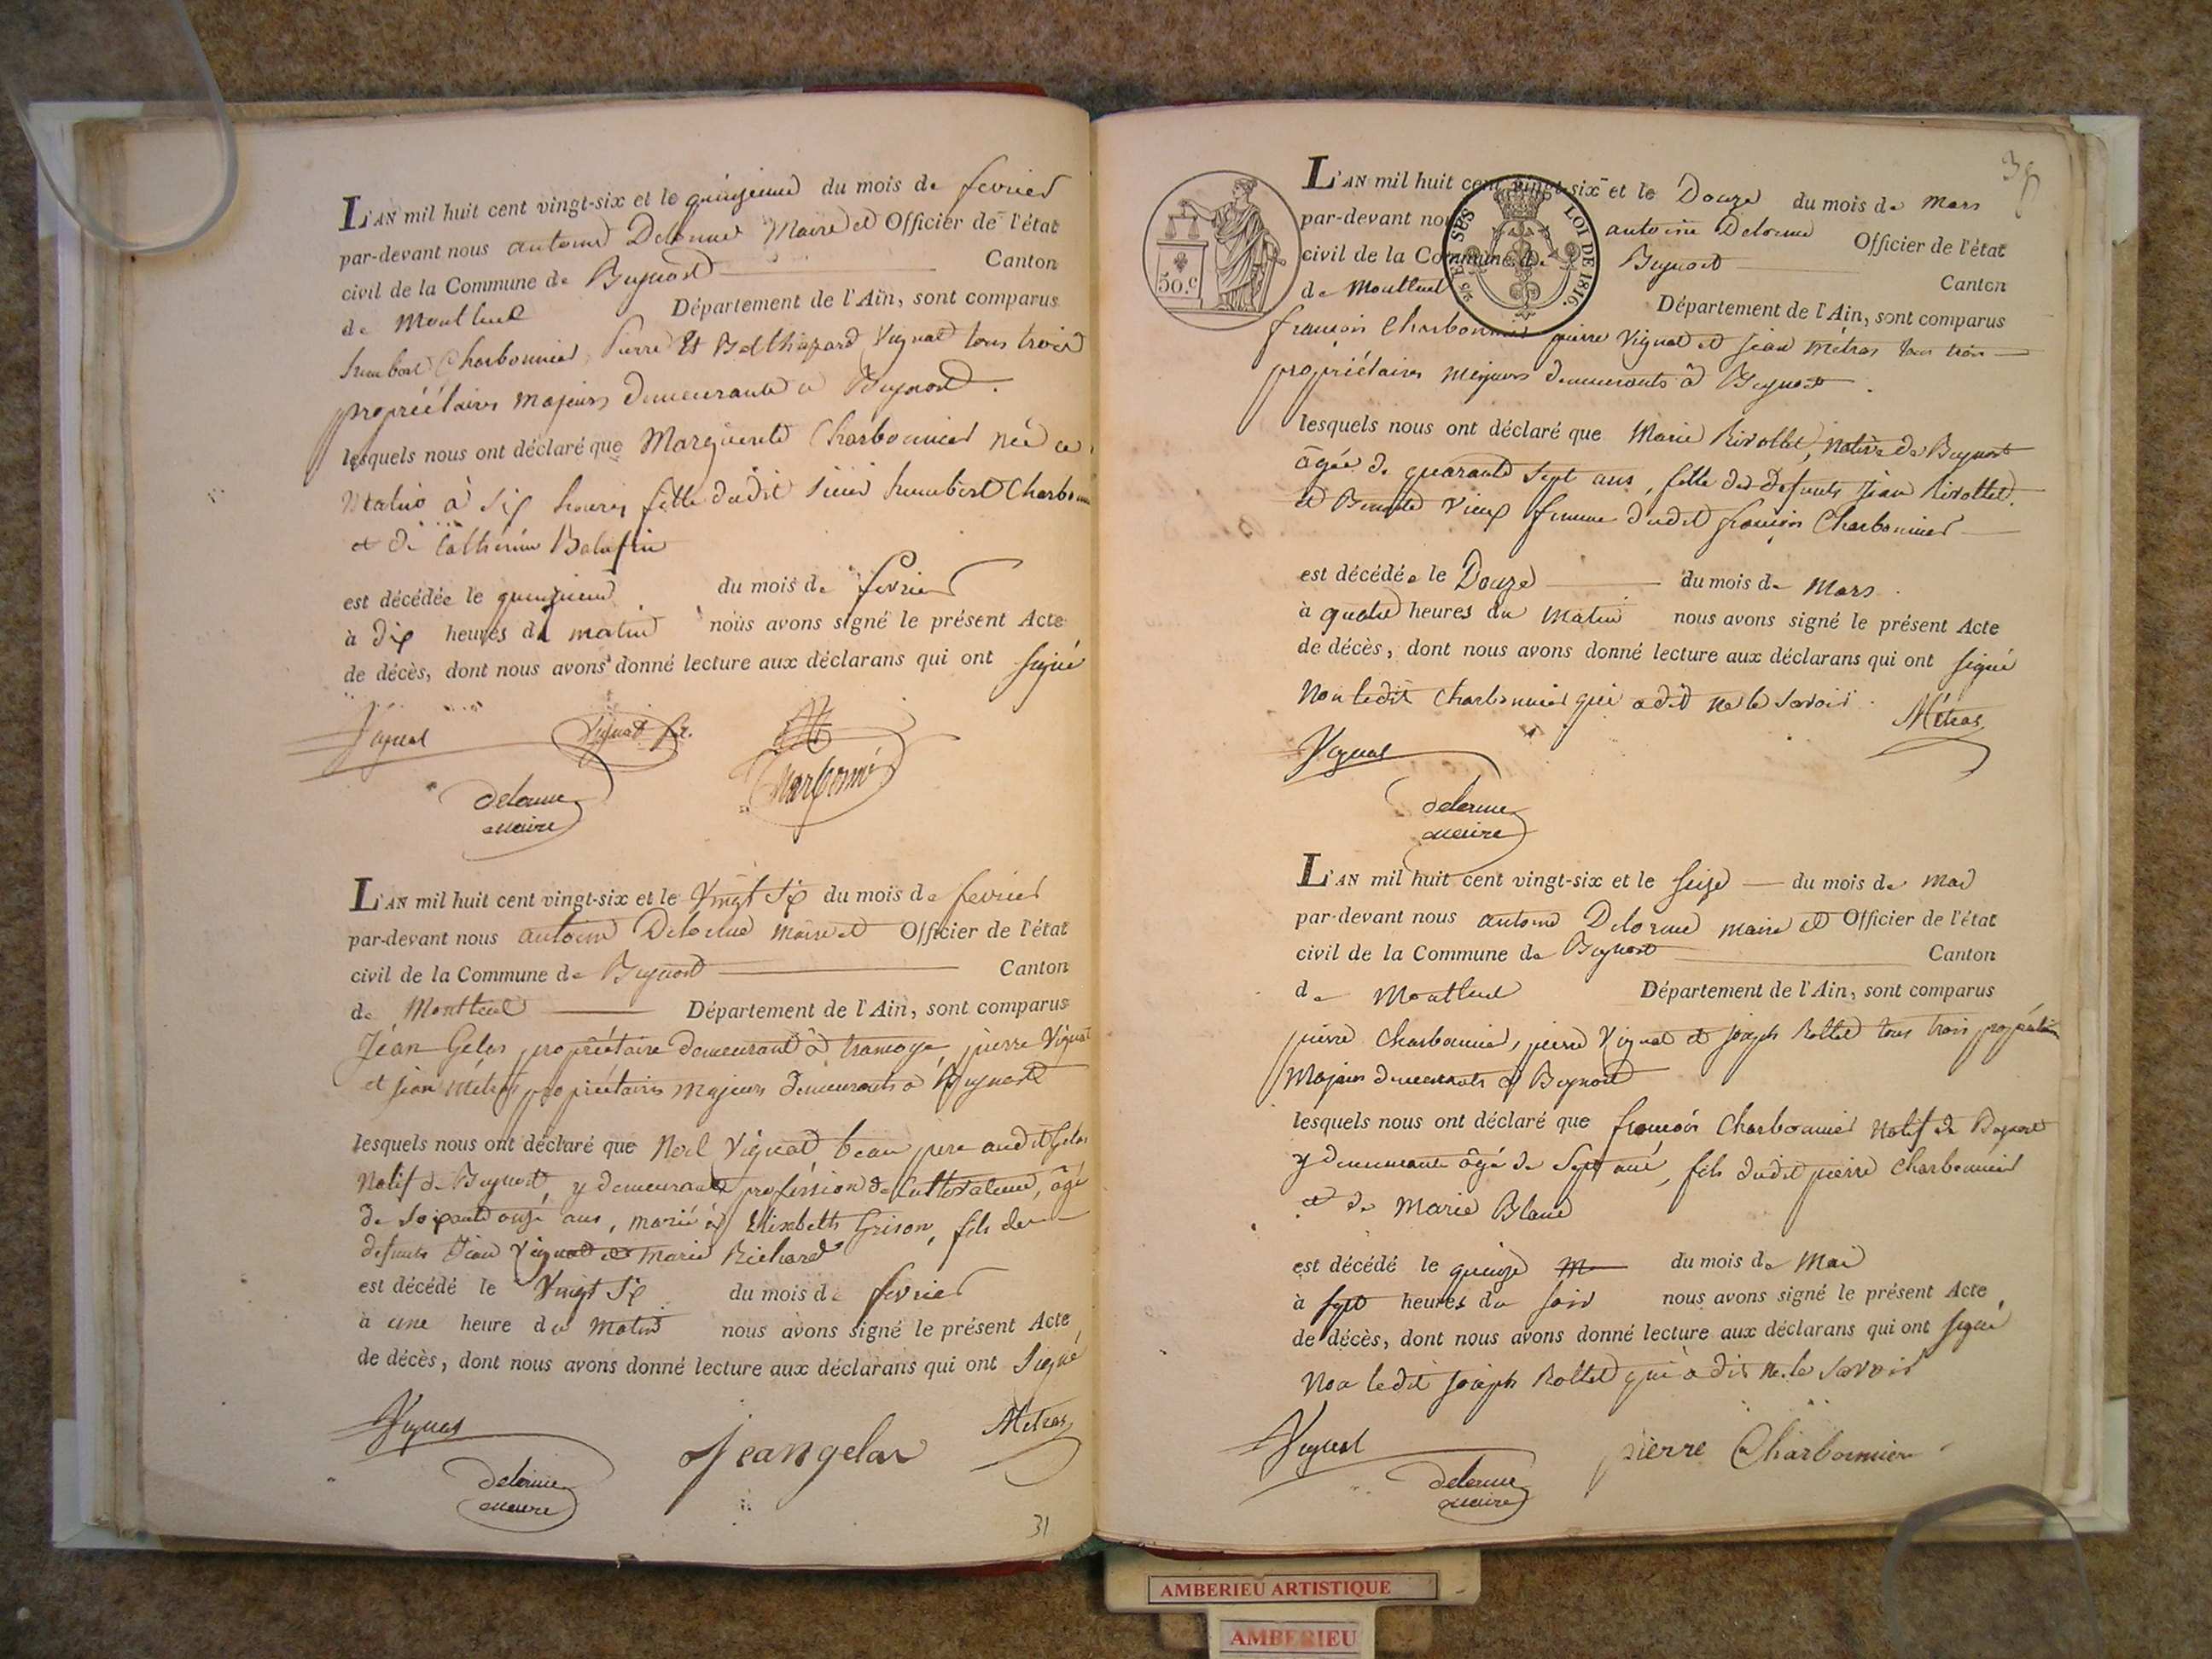 L'AN mil huit cent vingt-six et le quinzieme du mois de fevrier
par-devant nous antoine Delorme Maire et Officier de l'état
civil de la Commune de Beynost Canton
de Montluel Département de l'Ain, sont comparus
humbert Charbonnier, Pierre Et Balthazard Vignat tous trois
propriétaires majeurs demeurants a Beynost.
lesquels nous ont déclaré que Marguerite Charbonnier née ce
Matin à six heures fille dudit sieur humbert Charbonn
et de Catherine
est décédée le quinzieme du mois de fevrier
à dix heures du matin nous avons signé le présent Acte
de décès, dont nous avons donné lecture aux déclarans qui ont signé
Vignat Vignat Charbonnié
delorme
maire
L'AN mil huit cent vingt-six et le Vingt Six du mois de fevrier
par-devant nous antoine Delorme maire et Officier de l'état
civil de la Commune de Beynost Canton
de Montluel Département de l'Ain, sont comparus
Jean Gelas, propriétaire demeurant à tramoye, pierre Vignat
et jean Métras propriétaires majeurs demeurants à Beynost
lesquels nous ont déclaré que Noel Vignat beau pere audit Gelas
Natif de Beynost, y demeurant, proféssion de Cultivateur, âgé
de soixante onze ans, marié à Elisabeth Grison, fils des
defunts Jean Vignat et Marie Richard
est décédé le Vingt Six du mois de fevrier
à une heure du Matin nous avons signé le présent Acte
de décès, dont nous avons donné lecture aux déclarans qui ont signé
Vignat jean gelas Métras
delorme
maire
31
38
50.c
LOI DE 1816.
L'AN mil huit cent vingt-six et le Douze du mois de Mars
par-devant nous antoine Delorme Officier de l'état
civil de la Commune de Beynost Canton
de Montluel Département de l'Ain, sont comparus
françois Charbonnier pierre Vignat et jean métras tous trois
propriétaires majeurs demeurants à Beynost.
lesquels nous ont déclaré que Marie Rivollet, native de Beynost
âgée de quarante sept ans, fille des defunts Jean Rivollet
et Benoite Vieux femme dudit françois Charbonnier
est décédée le Douze du mois de Mars
à quatre heures du Matin nous avons signé le présent Acte
de décès, dont nous avons donné lecture aux déclarans qui ont signé
Non ledit Charbonnier qui a dit ne le savoir.
Vignat Métras
delorme
maire
L'AN mil huit cent vingt-six et le seize du mois de Mai
par-devant nous antoine Delorme maire et Officier de l'état
civil de la Commune de Beynost Canton
de Montluel Département de l'Ain, sont comparus
pierre Charbonnier, pierre Vignat et joseph Rollet tous trois propriétaires
Majeurs demeurants à Beynost
lesquels nous ont déclaré que françois Charbonnier Natif de Beynost
y demeurant âgé de Sept ans, fils dudit pierre Charbonnier
et de Marie Blanc
est décédé le quinze du mois de Mai
à sept heures du soir nous avons signé le présent Acte
de décès, dont nous avons donné lecture aux déclarans qui ont signé
Non ledit joseph Rollet qui a dit ne le savoir
Vignat pierre Charbonnier
delorme
maire
AMBERIEU ARTISTIQUE
AMBERIEU